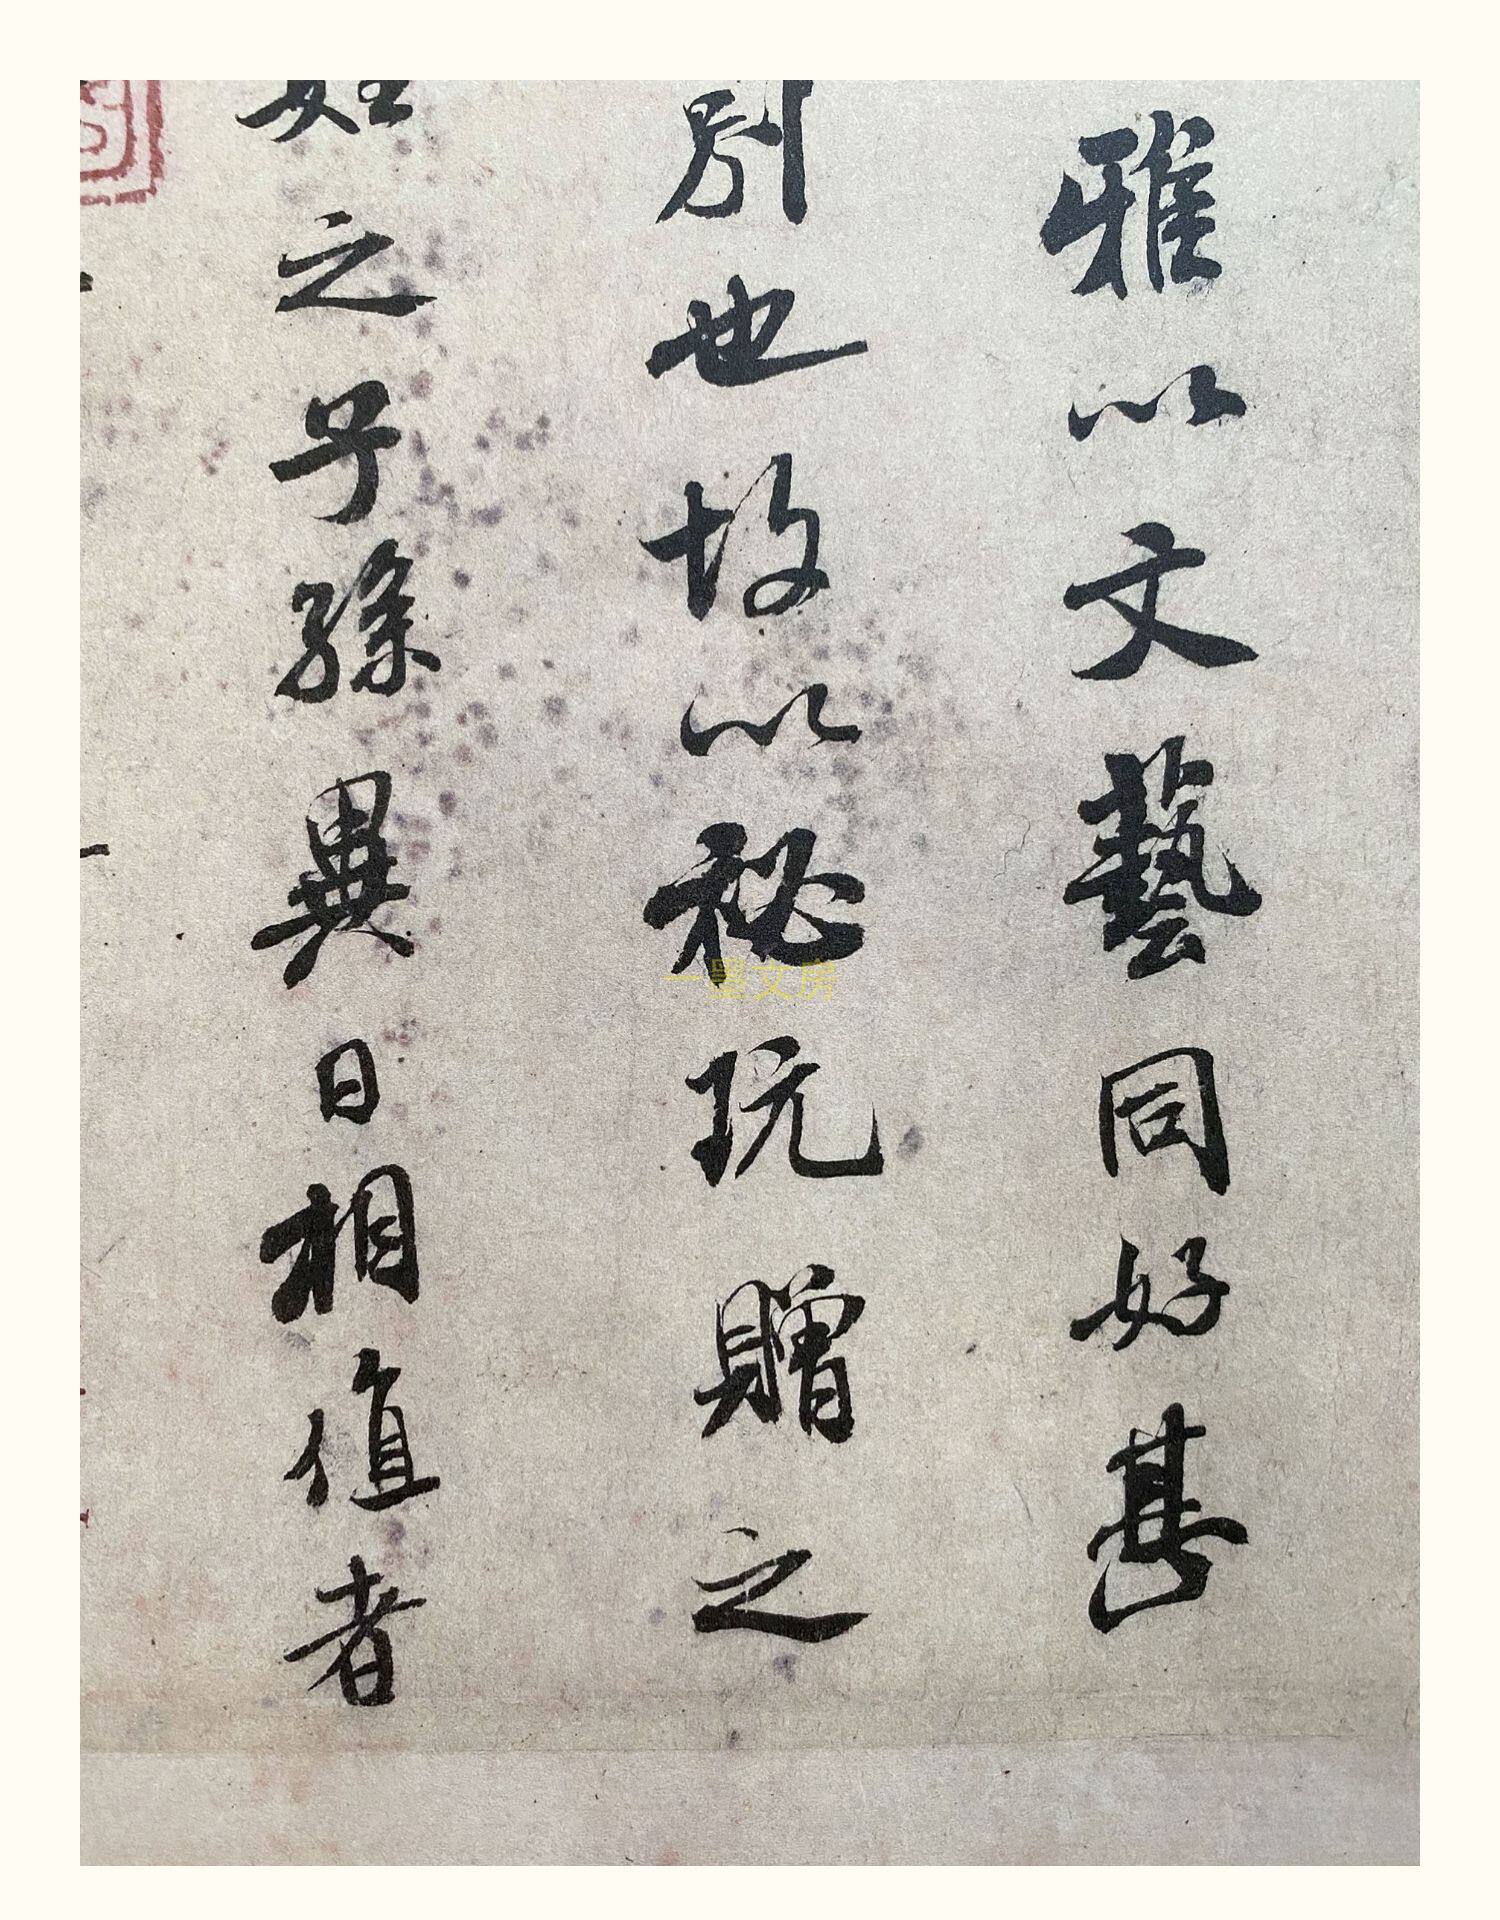 雅以文藝同好甚
別也故以祕玩贈之
姓之子孫異日相值者
一墨文房